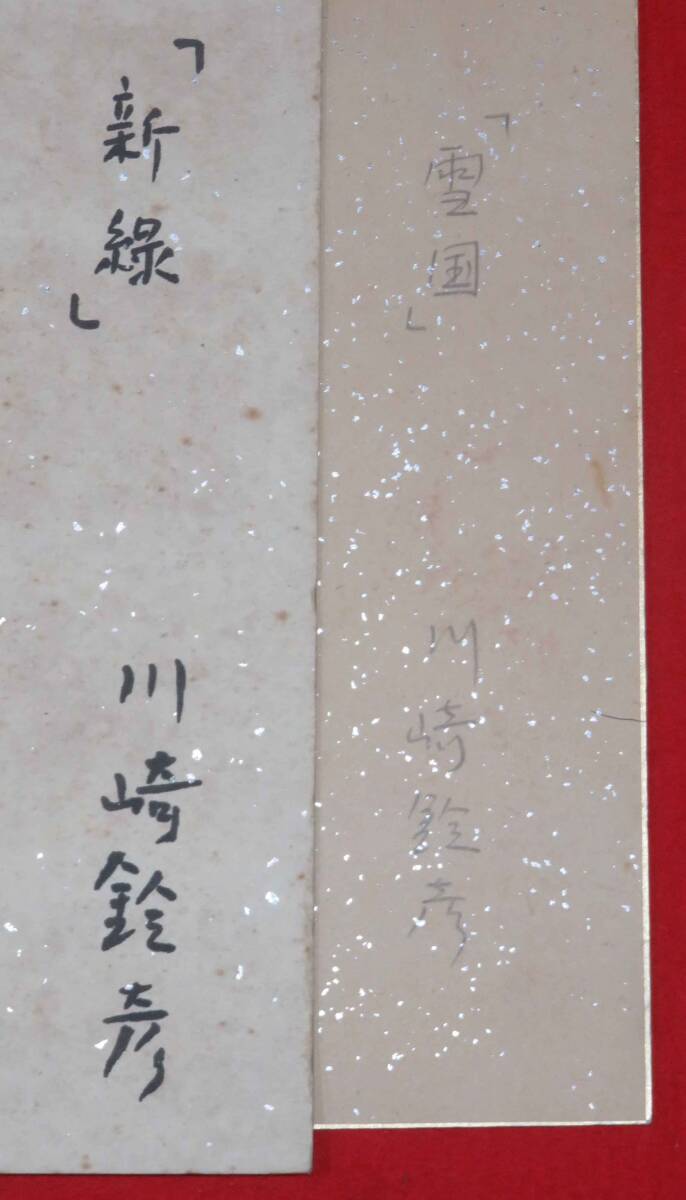 「雪国」
川崎鈴彦
「新緑」
川崎鈴彦